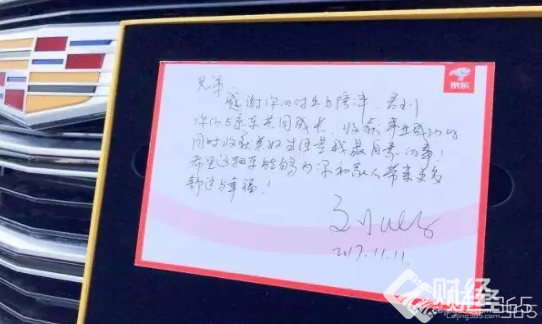 京东
兄弟
感谢你的付出与陪伴，看到
你们与京东共同成长，收获事业成功的
同时收获美好生活是我最自豪的事！
希望这把车能够为你和家人带来更多
舒适与幸福！
2017.11.11
财经365
Caijing365.com